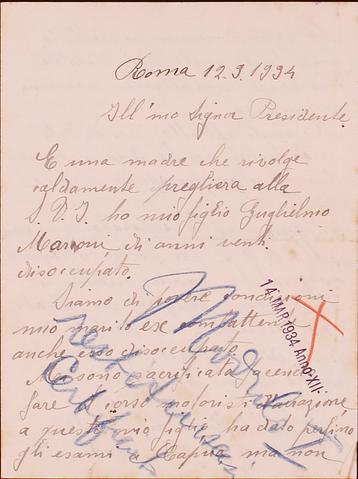 Roma 12.3.1934
Ill'mo Signor Presidente
E una madre che rivolge
caldamente pregliera alla
S.V.I. ho mio figlio Guglielmo
Marconi di anni venti
disoccupato.
Siamo di povere condizioni
mio marito ex combattente
anche esso disoccupato.
Mi sono sacrificata facendo
fare il corso motoristi d'aviazione
a questo mio figlio ha dato perfino
gli esami a Capua ma non
14 MAR 1934 Anno XII